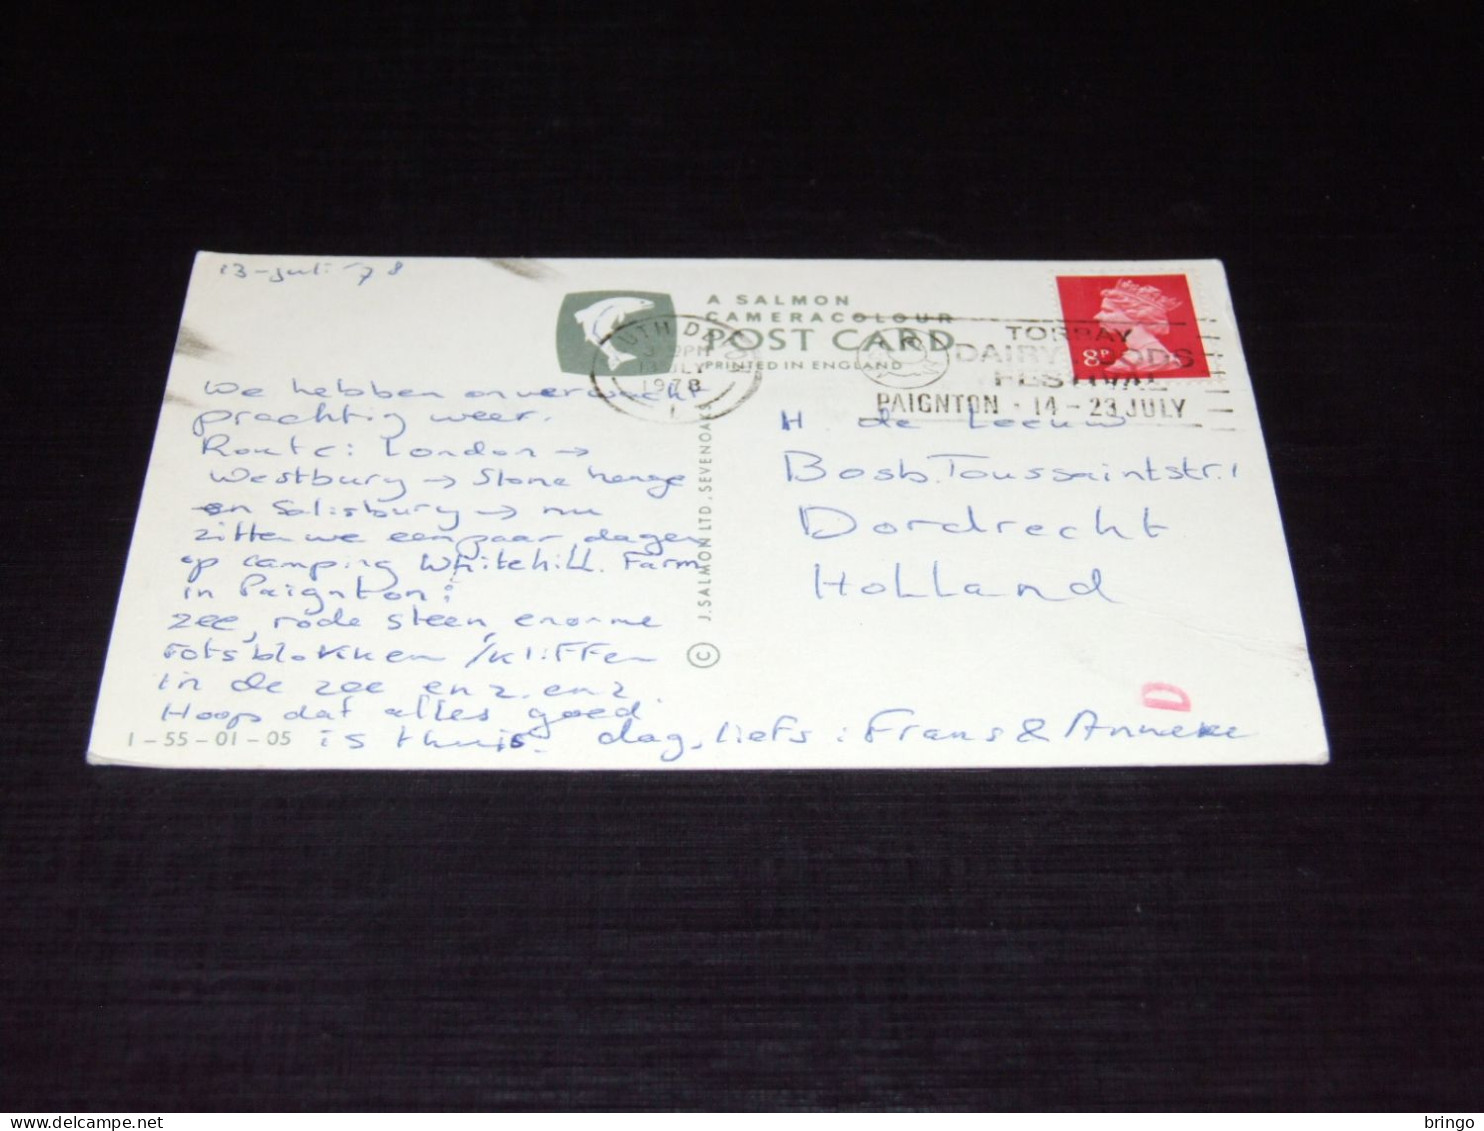 13-juli '78
A SALMON
CAMERACOLOUR
POST CARD
PRINTED IN ENGLAND
JULY
1978
TORBAY
DAIRY FOODS
FESTIVAL
PAIGNTON · 14 - 23 JULY
8P
We hebben onverwacht
prachtig weer.
Route: London →
Westbury → Stone henge
en Salisbury → nu
zitten we een paar dagen
op camping Whitehill Farm
in Paignton:
zee, rode steen, enorme
rotsblokken/kliffen
in de zee enz. enz.
Hoop dat alles goed
is thuis. dag, liefs: Frans & Anneke
1-55-01-05
© J. SALMON LTD., SEVENOAKS
H de Leeuw
Bosb. Toussaintstr. 1
Dordrecht
Holland
D
www.delcampe.net
bringo